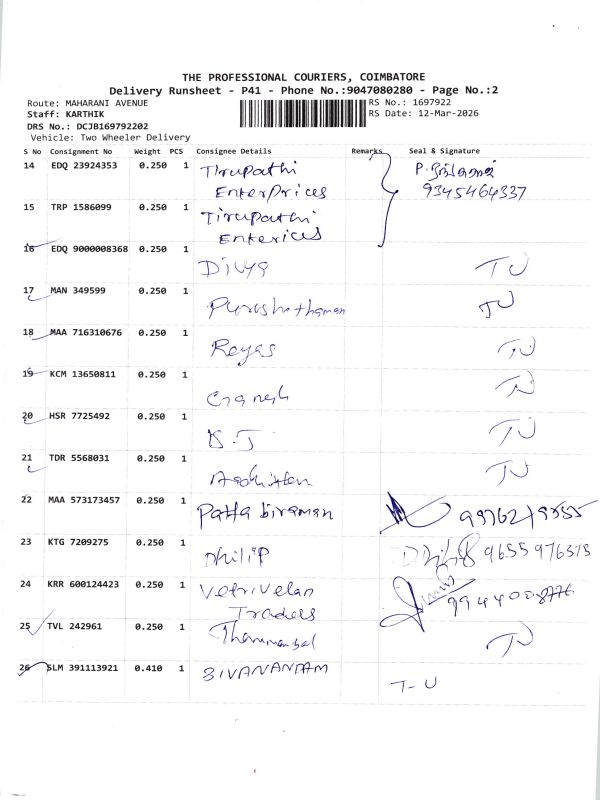 THE PROFESSIONAL COURIERS, COIMBATORE
Delivery Runsheet - P41 - Phone No.:9047080280 - Page No.:2
Route: MAHARANI AVENUE
RS No.: 1697922
Staff: KARTHIK
RS Date: 12-Mar-2026
DRS No.: DCJB169792202
Vehicle: Two Wheeler Delivery
S No Consignment No Weight PCS Consignee Details Remarks Seal & Signature
14 EDQ 23924353 0.250 1 Tirupathi
Enterprices
9345464337
15 TRP 1586099 0.250 1 Tirupathi
Enterices
16 EDQ 9000008368 0.250 1 Divya TU
17 MAN 349599 0.250 1 Purushothaman TU
18 MAA 716310676 0.250 1 Reyas TU
19 KCM 13650811 0.250 1 Ganesh TU
20 HSR 7725492 0.250 1 TU
21 TDR 5568031 0.250 1 TU
22 MAA 573173457 0.250 1 Pattabiraman
23 KTG 7209275 0.250 1 Philip 9655976313
24 KRR 600124423 0.250 1 Vetrivelan
Traders
25 TVL 242961 0.250 1 TU
26 SLM 391113921 0.410 1 SIVANANDAM T-U